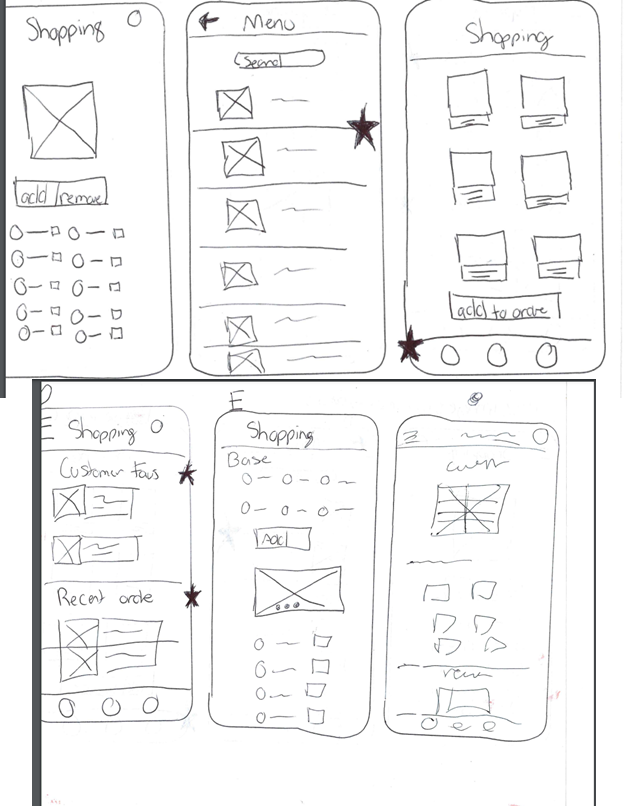 Shopping
add remove
Menu
Search
Shopping
add to order
E Shopping
Customer favs
Recent orde
E
Shopping
Base
Add